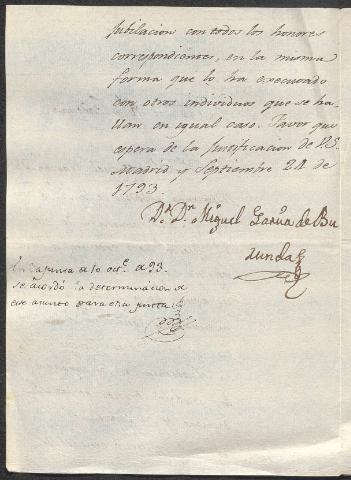 jubilacion con todos los honores
correspondientes, en la misma
forma que lo ha executado
con otros individuos que se ha-
llan en igual caso. Favor que
espera de la justificacion de V.S.
Madrid y Septiembre 24 de
1793.
Dr. Dn. Miguel Garcia de Bu
runda
En la junta de 10 oct.e de 93.
se acordó la determinacion de
este asunto para otra junta